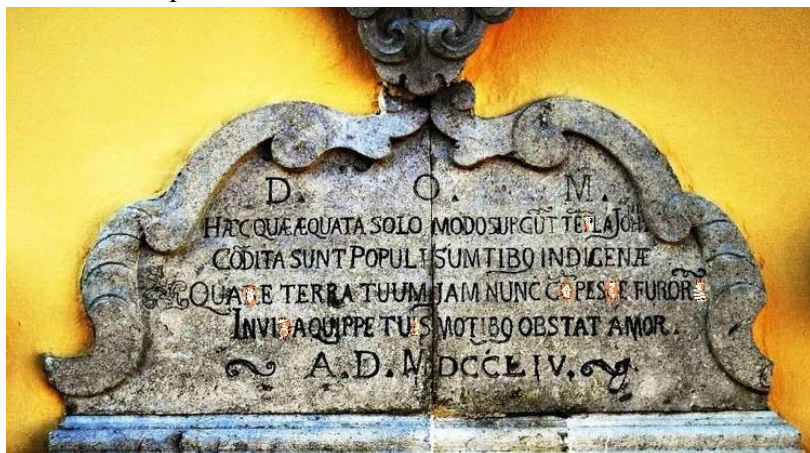 D. O. M.
HÆC QUÆ ÆQUATA SOLO MODO SURGŨT TẼPLA JOH.
CÕDITA SUNT POPULI SUMTIBQ INDIGENÆ
QUARE TERRA TUUM JAM NUNC CÕPESCE FURORẼ
INVIDA QUIPPE TUIS MOTIBQ OBSTAT AMOR.
A. D. MDCCLIV.